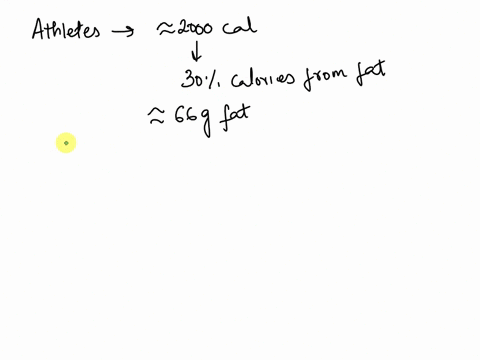 Athletes → ≈2000 cal
↓
30% calories from fat
≈ 66g fat